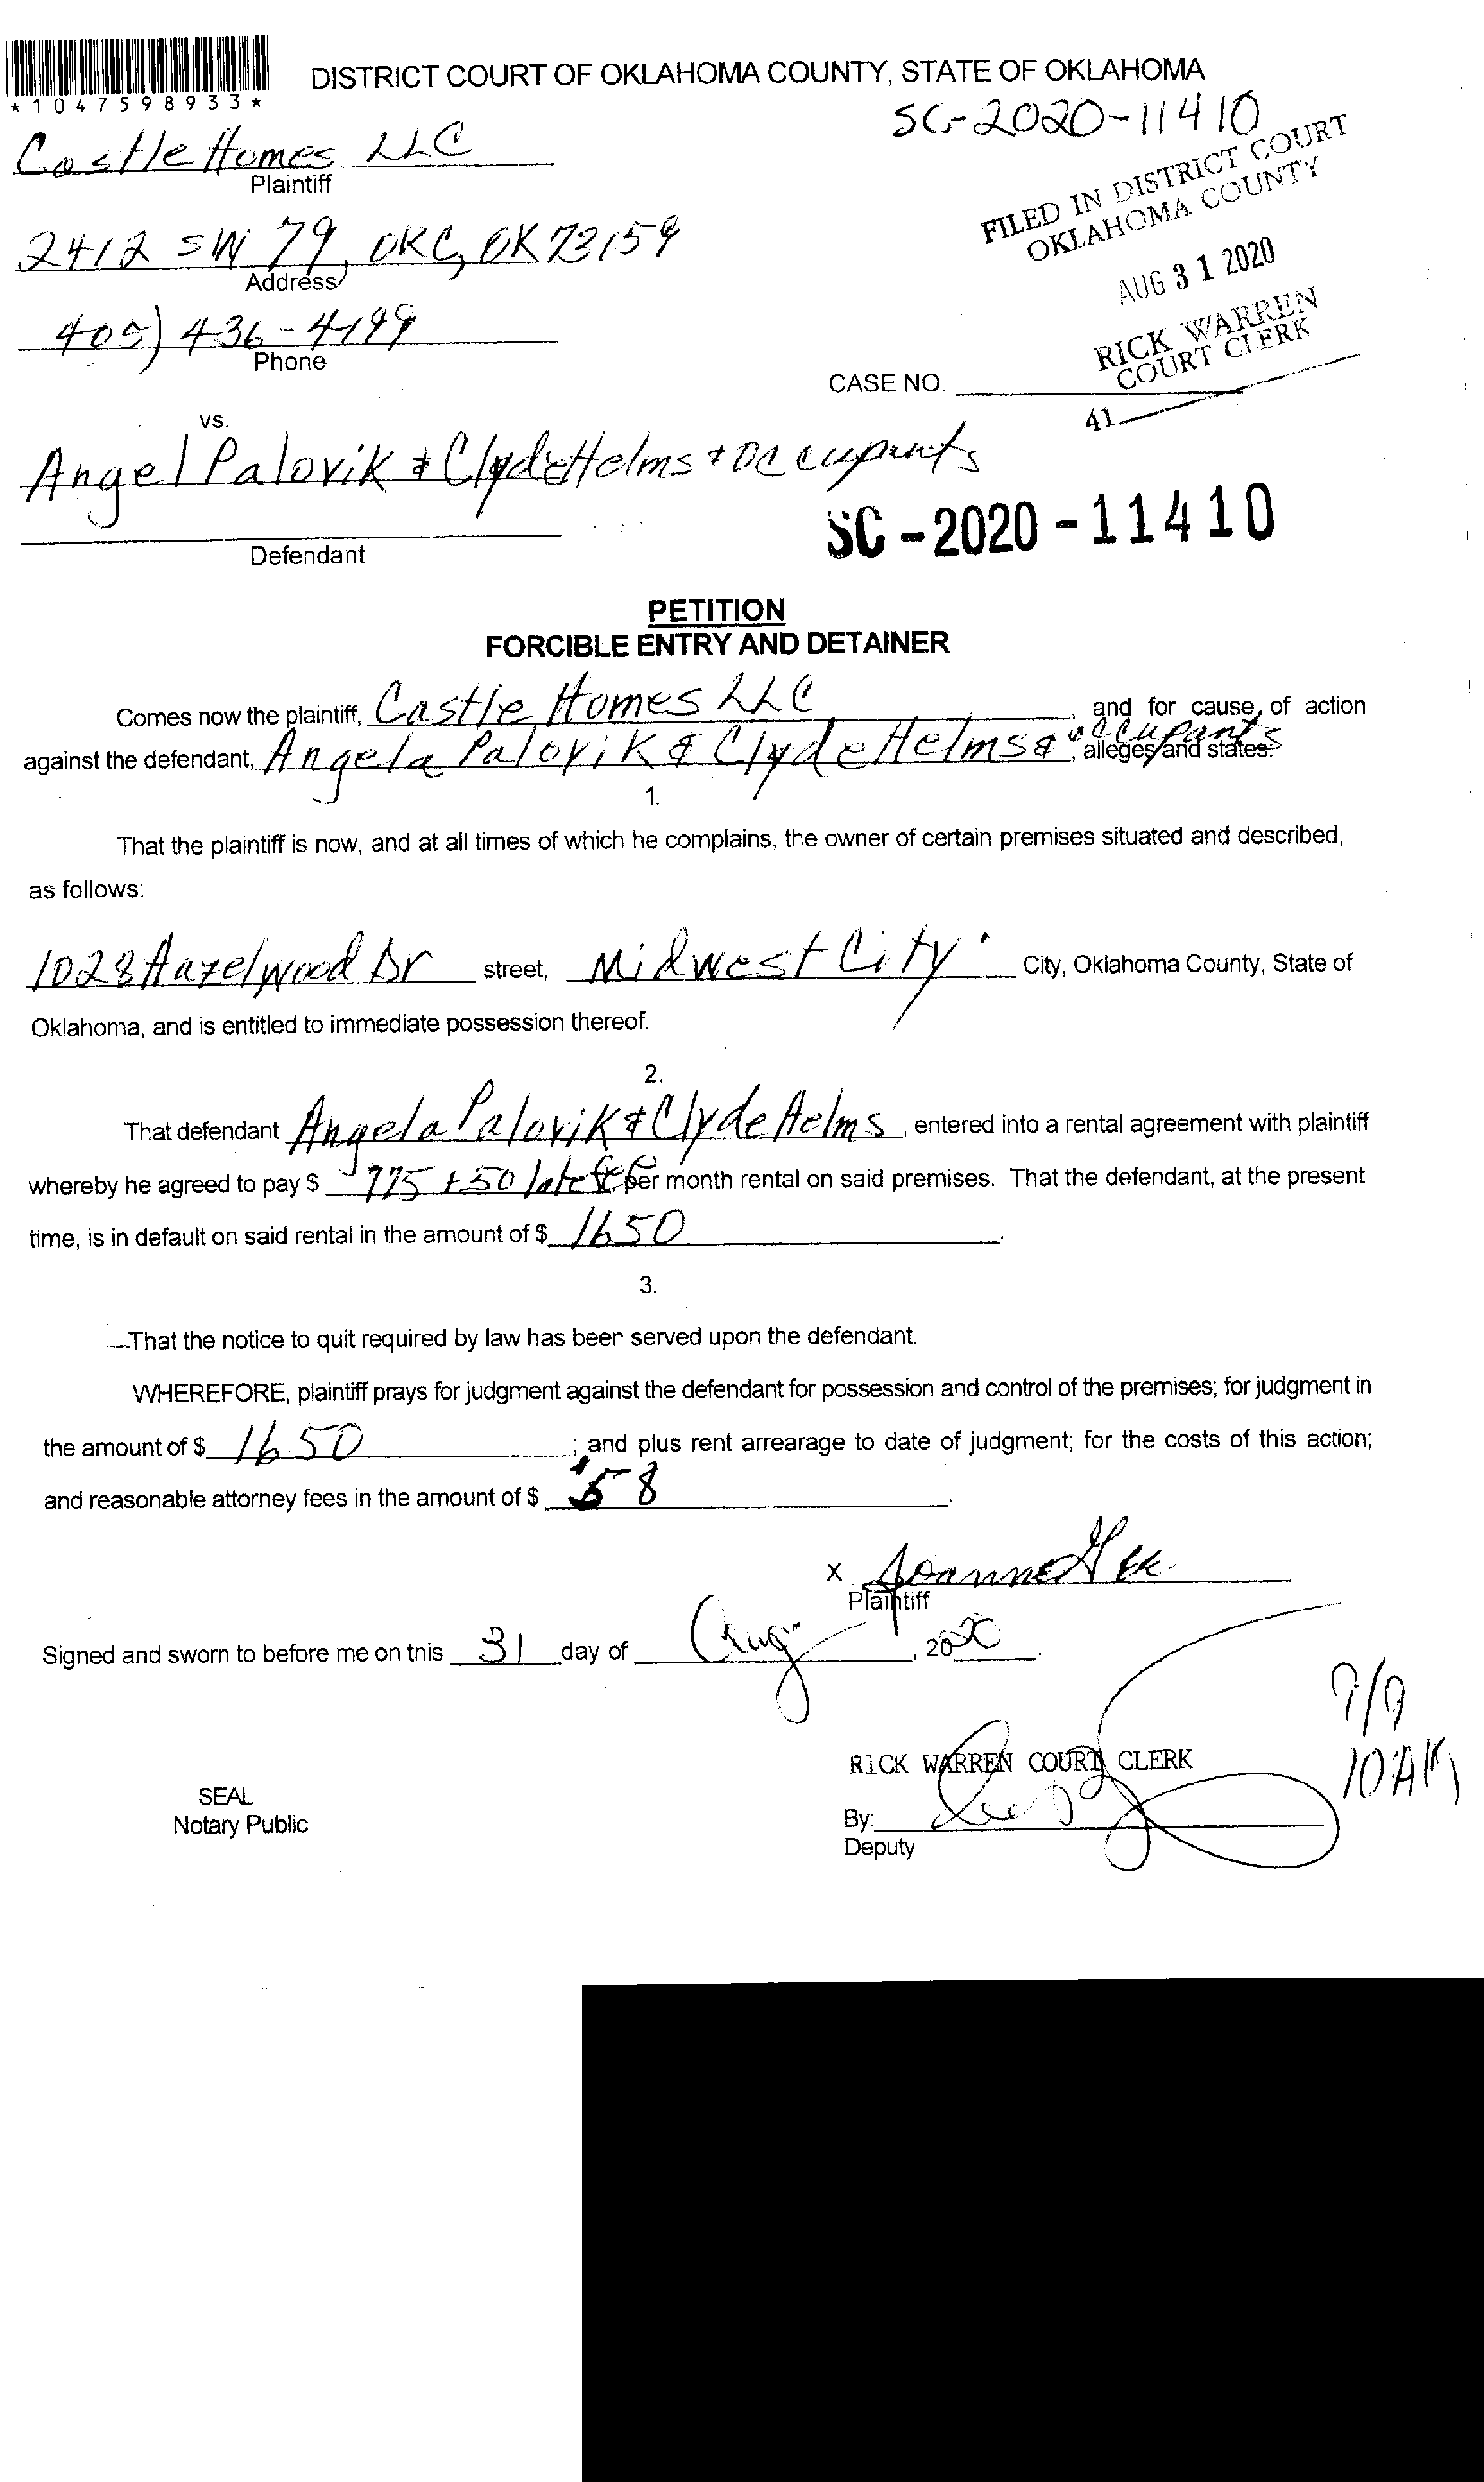 *1047598933*
DISTRICT COURT OF OKLAHOMA COUNTY, STATE OF OKLAHOMA
SC-2020-11410
Castle Homes LLC
Plaintiff
FILED IN DISTRICT COURT
OKLAHOMA COUNTY
2412 SW 79, OKC, OK 73159
Address
AUG 31 2020
405) 436-4199
Phone
RICK WARREN
COURT CLERK
CASE NO.
41
vs.
Angel Palovik & Clyde Helms + Occupants
Defendant
SC-2020-11410
PETITION
FORCIBLE ENTRY AND DETAINER
Comes now the plaintiff, Castle Homes LLC, and for cause of action
against the defendant, Angela Palovik & Clyde Helms & occupants, alleges and states:
1.
That the plaintiff is now, and at all times of which he complains, the owner of certain premises situated and described,
as follows:
1028 Hazelwood Dr street, Midwest City City, Oklahoma County, State of
Oklahoma, and is entitled to immediate possession thereof.
2.
That defendant Angela Palovik & Clyde Helms, entered into a rental agreement with plaintiff
whereby he agreed to pay $ 775 + 50 late fee per month rental on said premises. That the defendant, at the present
time, is in default on said rental in the amount of $ 1650.
3.
That the notice to quit required by law has been served upon the defendant.
WHEREFORE, plaintiff prays for judgment against the defendant for possession and control of the premises; for judgment in
the amount of $ 1650; and plus rent arrearage to date of judgment; for the costs of this action;
and reasonable attorney fees in the amount of $ 58.
X Joanne
Plaintiff
Signed and sworn to before me on this 31 day of Aug, 2020.
9/9
10 AM
RICK WARREN COURT CLERK
SEAL
Notary Public
By:
Deputy